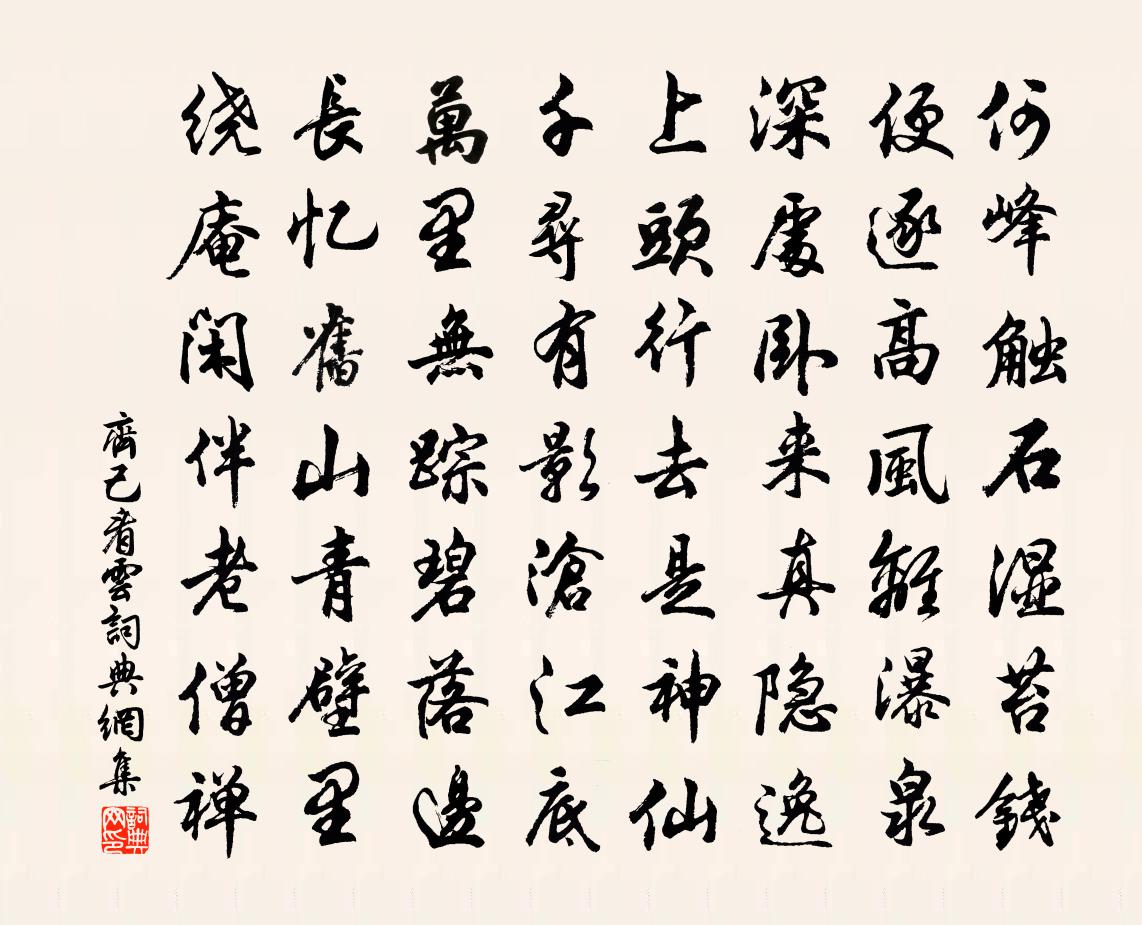 何峰触石湿苔錢
便逐高風離瀑泉
深處卧来真隐逸
上頭行去是神仙
千尋有影滄江底
萬里無踪碧落邊
長忆舊山青壁里
绕庵闲伴老僧禅
齊己看雲詞典網集
詞典网印